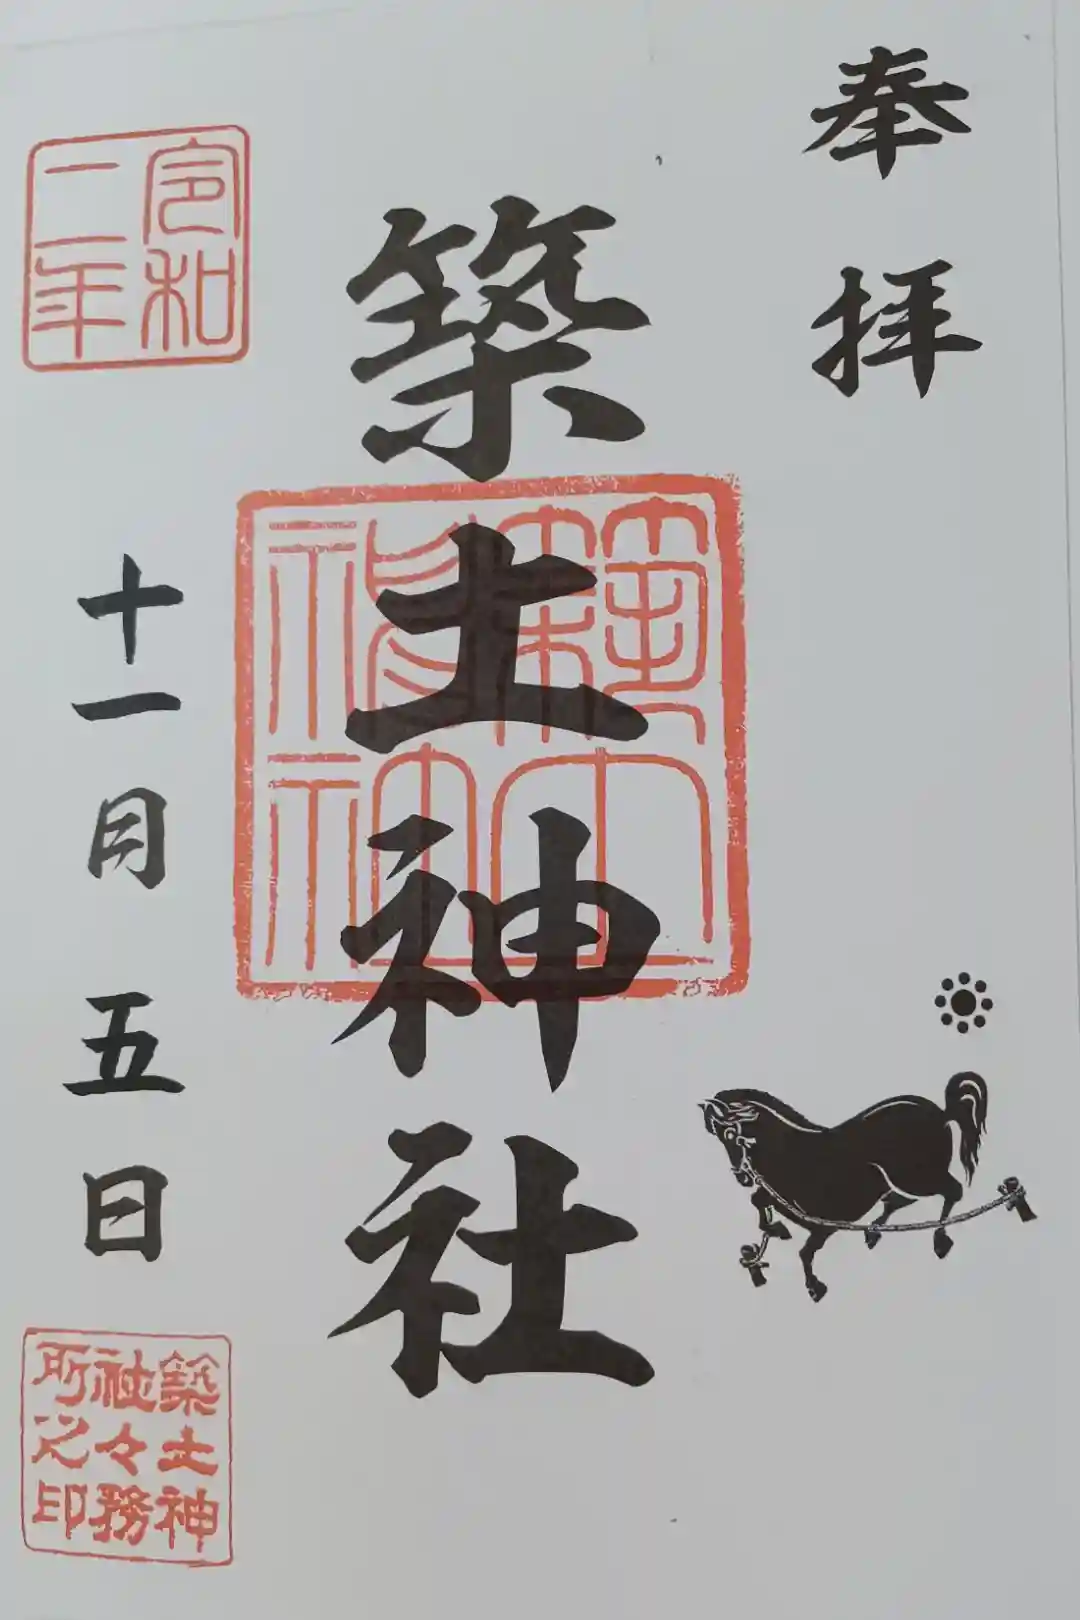 奉拝
築土神社
築土神社
令和
二年
十一月五日
築土神
社々務
所之印